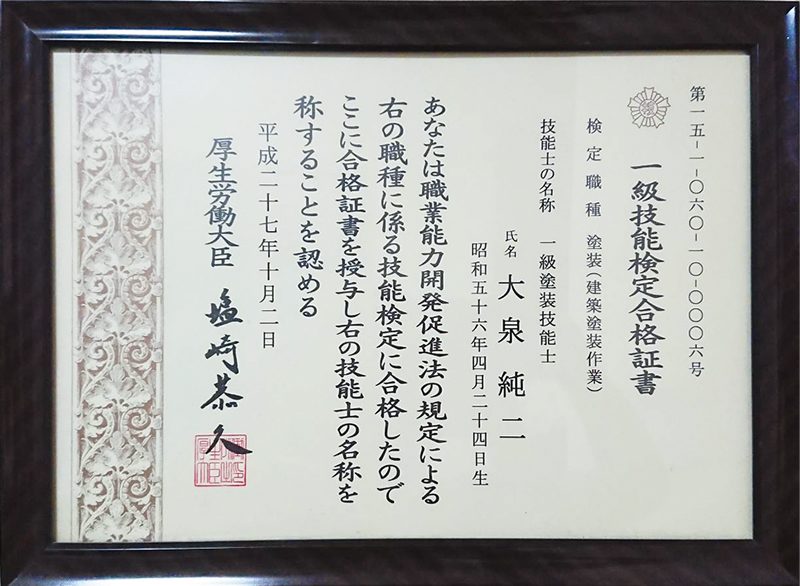 第一五-一-〇六〇-一〇-〇〇〇六号
一級技能検定合格証書
検定職種 塗装(建築塗装作業)
技能士の名称 一級塗装技能士
氏名 大泉純二
昭和五十六年四月二十四日生
あなたは職業能力開発促進法の規定による
右の職種に係る技能検定に合格したので
ここに合格証書を授与し右の技能士の名称を
称することを認める
平成二十七年十月二日
厚生労働大臣 塩崎恭久